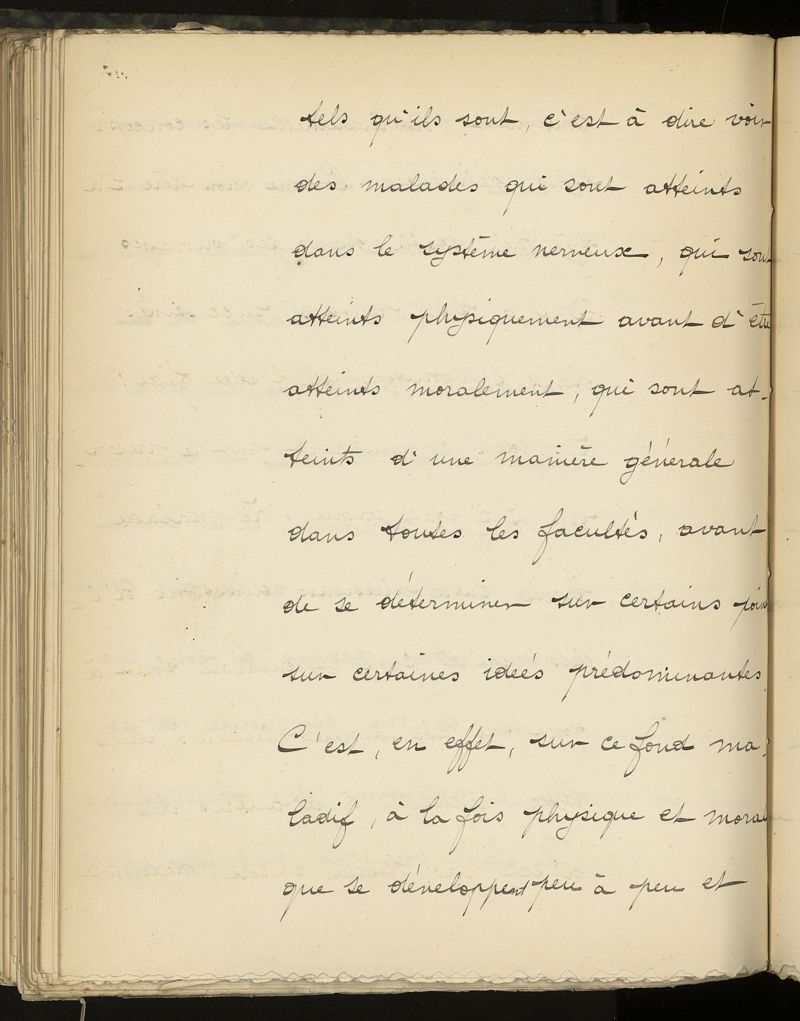 tels qu'ils sont, c'est à dire voir
des malades qui sont atteints
dans le système nerveux, qui sont
atteints physiquement avant d'être
atteints moralement, qui sont at-
teints d'une manière générale
dans toutes les facultés, avant
de se déterminer sur certains points
sur certaines idées prédominantes
C'est, en effet, sur ce fond ma-
ladif, à la fois physique et moral
que se développent peu à peu et